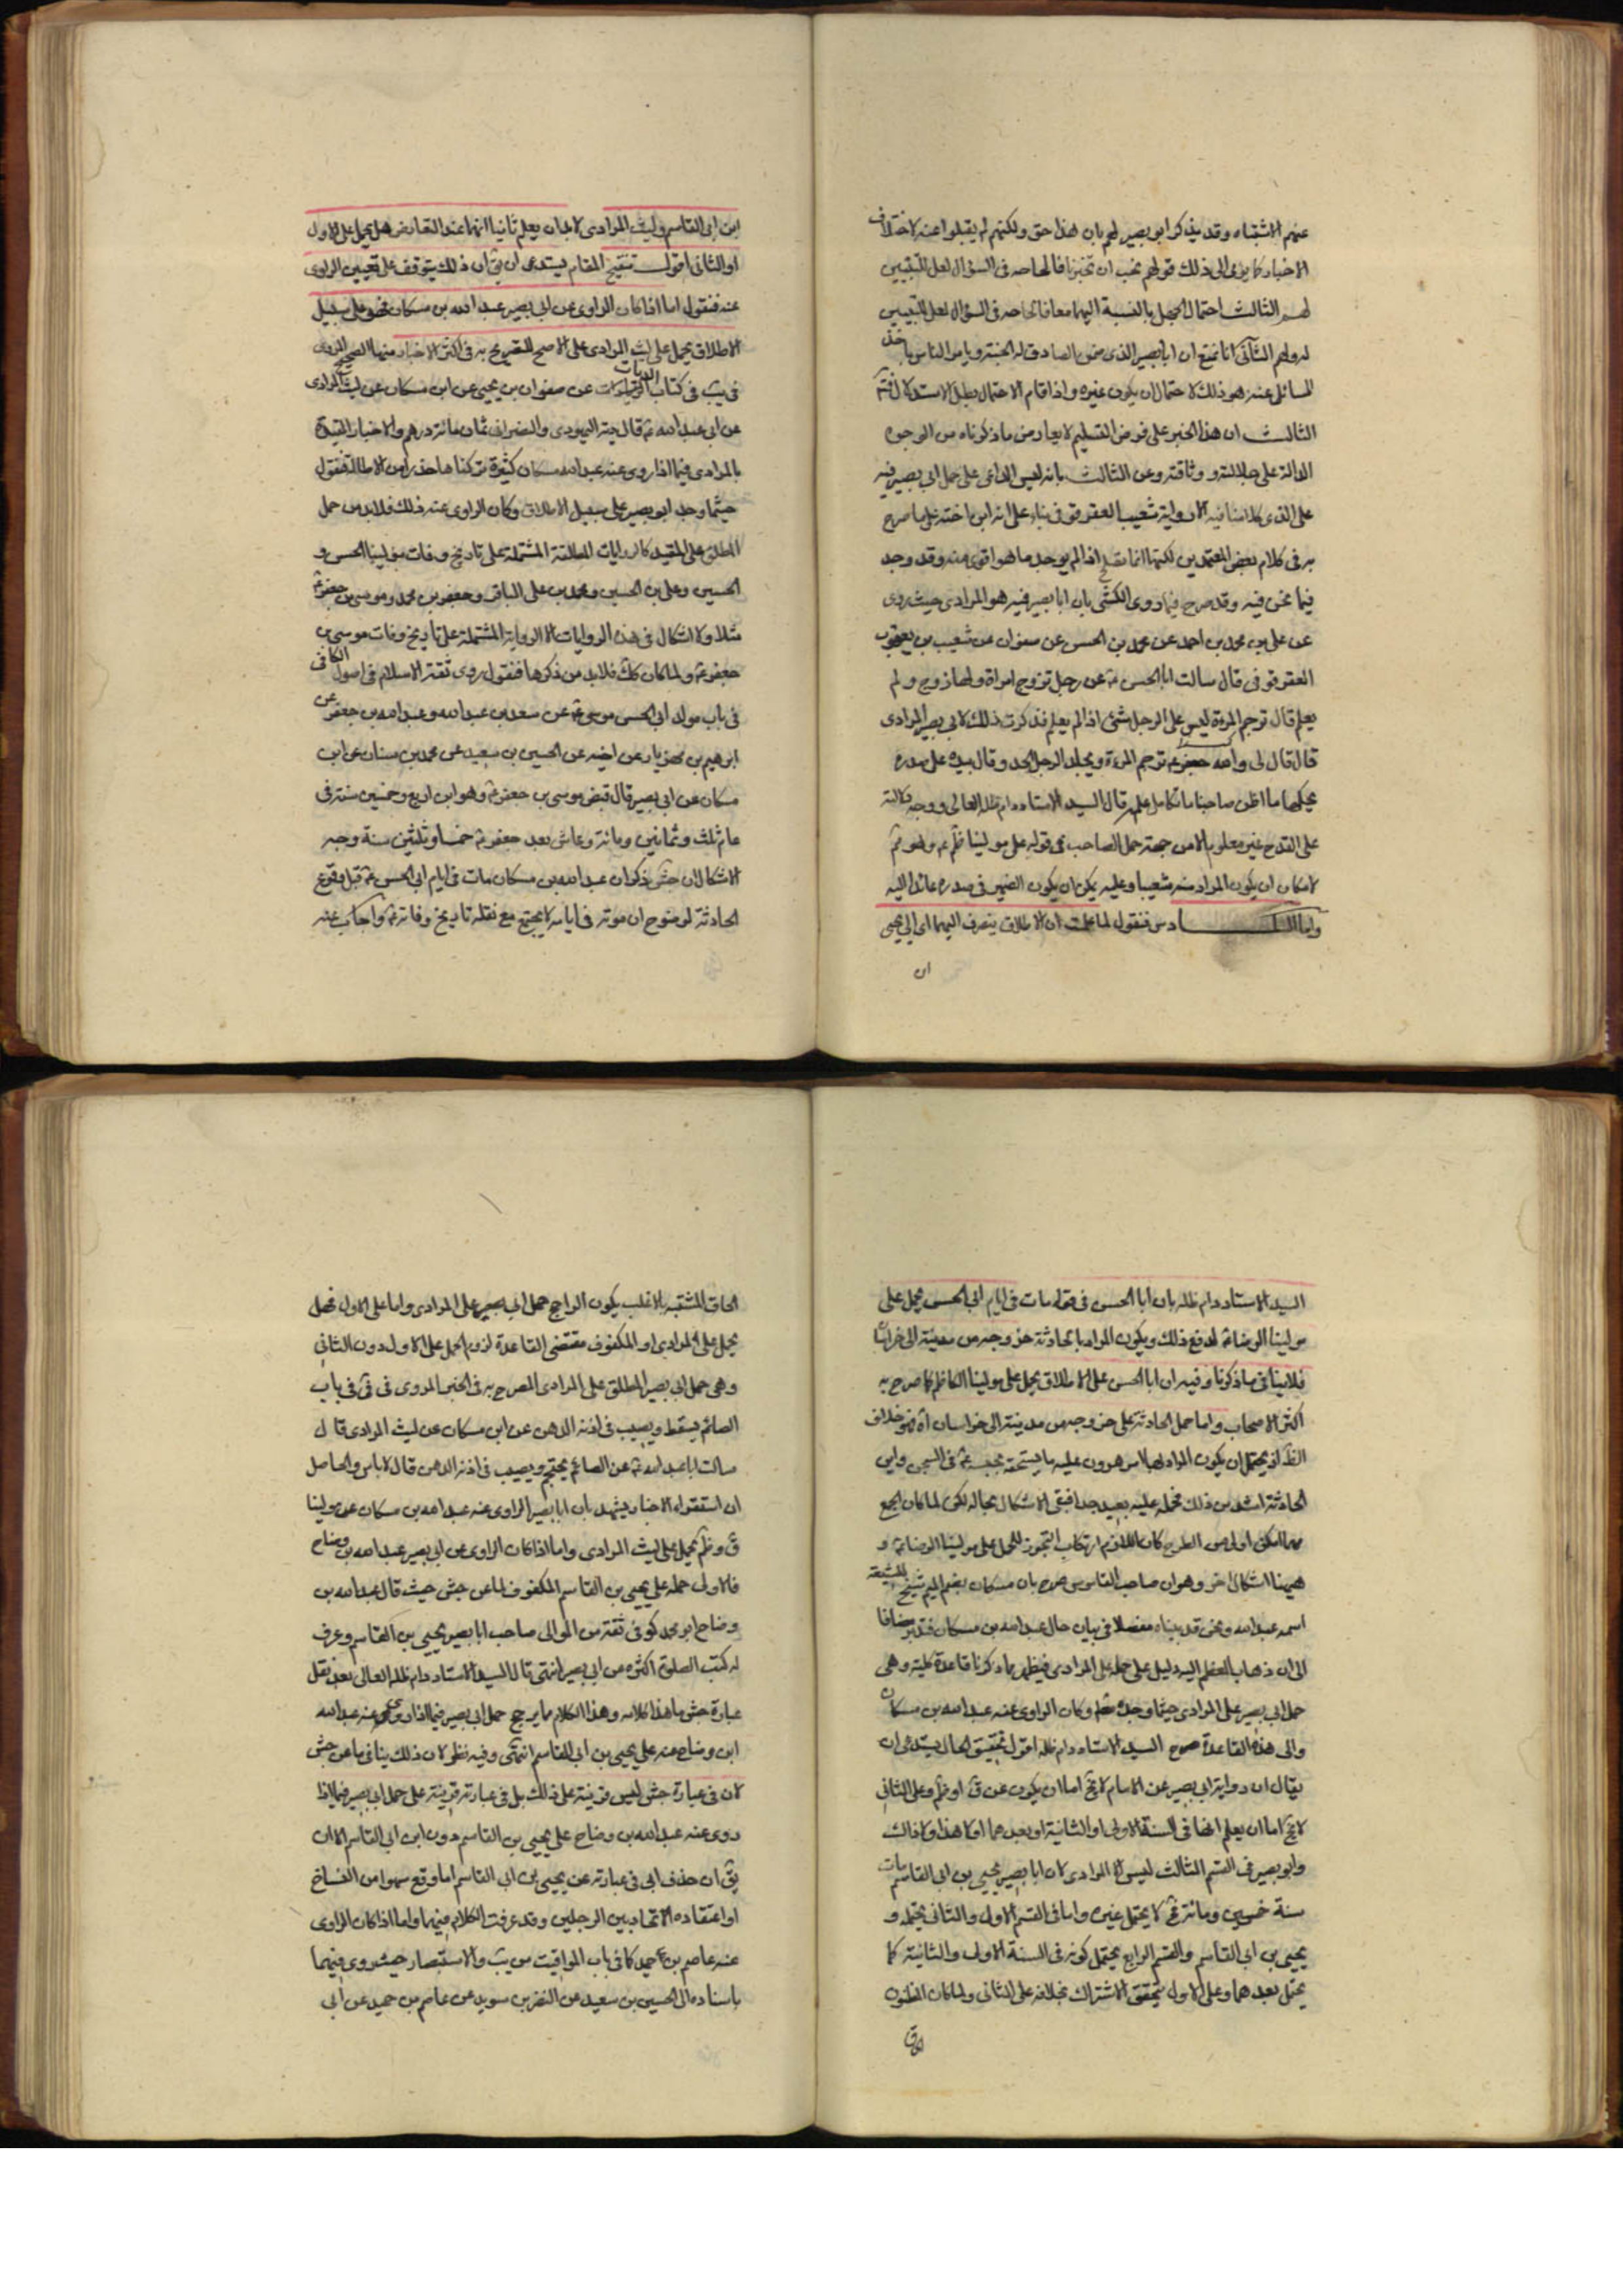 عنهم الاشتباه وقد يذكر ابو بصير لهم بان هذا حق ولكنهم لم يقبلوا عنه لاختلاف
الاخبار كما يؤمى الى ذلك قولهم نحب ان تخبرنا فالحاصه فى السؤال لعل للتبيين
لهم الثالث احتمال الجهل بالنسبة اليهما معا فالحاصه فى السؤال لعل للتبيين
لهم الثانى انا نمنع ان ابا بصير الذى ضمن الصادق له الجنة ويامر الناس باخذ
المسائل عنه هو ذلك لاحتمال ان يكون غيره واذا قام الاحتمال بطل الاستدلال فتم
الثالث ان هذا الخبر على فرض التسليم لا يعارض ما ذكرناه من الوجوه
الدالة على جلالته و وثاقته وعن الثالث بانه ليس الداعى على حمل ابى بصير فيه
على الذى كلامنا فيه الا رواية شعيب العقرقوفى بناء على انه ابن اخته على ما صرح
به فى كلام بعض المعتمدين لكنها انما تصلح اذا لم يوجد ما هو اقوى منه وقد وجد
فيما نحن فيه وقد صرح فيما روى الكشى بان ابا بصير فيه هو المرادى حيث روى
عن على بن محمد بن احمد عن محمد بن الحسن عن صفوان عن شعيب بن يعقوب
العقرقوفى قال سالت ابا الحسن ع عن رجل تزوج امراة ولها زوج ولم
يعلم قال ترجم المرءة وليس على الرجل شئ اذا لم يعلم فذكرت ذلك لابى بصير المرادى
قال قال لى والله جعفر ع ترجم المرءة ويجلد الرجل الحد وقال بيده على صدره
يحكها ما اظن صاحبنا ما تكامل علمه قال السيد الاستاد دام ظله العالى ووجه دلالته
على القدح غير معلوم الا من جهة حمل الصاحب فى قوله على مولينا ظم ع وهو فم
لامكان ان يكون المراد منه شعيبا وعليه يمكن ان يكون الضمير فى صدره عائدا اليه
واما السادس فنقول لما علمت ان الاطلاق ينصرف اليهما اى الى يحيى
ان
ابن ابى القاسم وليث المرادى لابد ان يعلم ثانيا انهما عند التعارض هل يحمل على الاول
او الثانى اقول تنقيح المقام يستدعى ان يق ان ذلك يتوقف على تعيين الراوى
عنه فنقول اما اذا كان الراوى عن ابى بصير عبد الله بن مسكان فهو على سبيل
الاطلاق يحمل على ليث المرادى على الاصح للتصريح به فى اكثر الاخبار منها الصحيح المروى
فى يب فى كتاب الديات عن صفوان بن يحيى عن ابن مسكان عن ليث المرادى
عن ابى عبد الله ع قال دية اليهودى والنصرانى ثمان مائة درهم والاخبار المقيدة
بالمرادى فيما اذا روى عنه عبد الله مسكان كثيرة تركناها حذرا من الاطالة فنقول
حيثما وجد ابو بصير على سبيل الاطلاق وكان الراوى عنه ذلك فلابد من حمل
المطلق على المقيد كالروايات المطلقة المشتملة على تاريخ وفات مولينا الحسن و
الحسين وعلى بن الحسين ومحمد بن على الباقر وجعفر بن محمد وموسى بن جعفر ع
مثلا ولا اشكال فى هذه الروايات الا الرواية المشتملة على تاريخ وفات موسى بن
جعفر ع ولما كان كك فلابد من ذكرها فنقول روى ثقة الاسلام فى اصول الكافى
فى باب مولد ابى الحسن موسى ع عن سعد بن عبد الله وعبد الله بن جعفر عن
ابرهيم بن مهزيار عن اخيه عن الحسين بن سعيد عن محمد بن سنان عن ابن
مسكان عن ابى بصير قال قبض موسى بن جعفر ع وهو ابن اربع وخمسين سنة فى
عام ثلث وثمانين ومائة وعاش بعد جعفر ع خمسا وثلثين سنة وجه
الاشكال ان جش ذكر ان عبد الله بن مسكان مات فى ايام ابى الحسن ع قبل وقوع
الحادثة لوضوح ان موته فى ايامه لا يجتمع مع نقله تاريخ وفاته ع واجاب عنه
السيد الاستاد دام ظله بان ابا الحسن فى قوله مات فى ايام ابى الحسن يحمل على
مولينا الرضا ع لدفع ذلك ويكون المراد بالحادثة خروجه من مدينة الى خراسان
فلا ينافى ما ذكرنا وفيه ان ابا الحسن على الاطلاق يحمل على مولينا الكاظم كما صرح به
اكثر الاصحاب واما حمل الحادثة على خروجه من مدينة الى خراسان آه فهو خلاف
الظ اذ يحتمل ان يكون المراد بها امر هرون عليه ما يستحقه بحبسه ع فى السجن واين
الحادثة اشد من ذلك فحمله عليه بعيد جدا فبقى الاشكال بحاله لكن لما كان الجمع
مهما امكن اولى من الطرح كان اللازم ارتكاب التجوز للحمل على مولينا الرضا ع و
ههنا اشكال اخر وهو ان صاحب القاموس صرح بان مسكان بضم الميم شيخ للشيعة
اسمه عبد الله ونحن قد بيناه مفصلا فى بيان حال عبد الله بن مسكان فتدبر مضافا
الى ان ذهاب المعظم اليه دليل على حمله على المرادى فيظهر مما ذكرنا قاعدة كلية وهى
حمل ابى بصير على المرادى حيثما وجد مط وكان الراوى عنه عبد الله بن مسكان
والى هذه القاعدة صرح السيد الاستاد دام ظله اقول تحقيق الحال يستدعى ان
يقال ان رواية ابى بصير عن الامام لا يخ اما ان يكون عن ق او ظم وعلى الثانى
لا يخ اما ان يعلم انها فى السنة الاولى او الثانية او بعدهما او لا هذا ولا ذاك
وابو بصير فى القسم الثالث ليس الا المرادى لان ابا بصير يحيى بن ابى القاسم مات
سنة خمسين ومائة فح لا يحتمل غيره واما فى القسم الاول والثانى يحتمله و
يحيى بن ابى القاسم والقسم الرابع يحتمل كونه فى السنة الاولى والثانية كما
يحتمل بعدهما وعلى الاول يتحقق الاشتراك بخلافه على الثانى ولما كان الظنون
الحاق المشتبه بالاغلب يكون الراجح حمل ابى بصير على المرادى واما على الاول فهل
يحمل على المرادى او المكفوف مقتضى القاعدة لزوم الحمل على الاول دون الثانى
وهى حمل ابى بصير المطلق على المرادى المصرح به فى الخبر المروى فى فى فى باب
الصائم يسقط ويصيب فى اذنه الدهن عن ابن مسكان عن ليث المرادى قال
سالت ابا عبد الله ع عن الصائم يحتجم ويصيب فى اذنه الدهن قال لا باس والحاصل
ان استقراء الاخبار يشهد بان ابا بصير الراوى عنه عبد الله بن مسكان عن مولينا
ق و ظم يحمل على ليث المرادى واما اذا كان الراوى عن ابى بصير عبد الله بن وضاح
فالاولى حمله على يحيى بن القاسم المكفوف لما عن جش حيث قال عبد الله بن
وضاح ابو محمد كوفى ثقة من الموالى صاحب ابا بصير يحيى بن القاسم وعرف
له كتب الصلوة اكثره عن ابى بصير انتهى قال السيد الاستاد دام ظله العالى بعد نقل
عبارة جش ما هذا كلامه وهذا الكلام مما يرجح حمل ابى بصير فيما اذا روى عنه عبد الله
ابن وضاح عنه على يحيى بن ابى القاسم انتهى وفيه نظر لان ذلك ينافى ما عن جش
لان فى عبارة جش ليس قرينة على ذلك بل فى عبارته قرينة على حمل ابى بصير فيما اذا
روى عنه عبد الله بن وضاح على يحيى بن القاسم دون ابن ابى القاسم الا ان
يق ان حذف ابى فى عبارته عن يحيى بن ابى القاسم اما وقع سهوا من النساخ
او اعتقاده الاتحاد بين الرجلين وقد عرفت الكلام فيهما واما اذا كان الراوى
عنه عاصم بن حميد كما فى باب المواقيت من يب والاستبصار حيث روى فيهما
باسناده الى الحسين بن سعيد عن النضر بن سويد عن عاصم بن حميد عن ابى